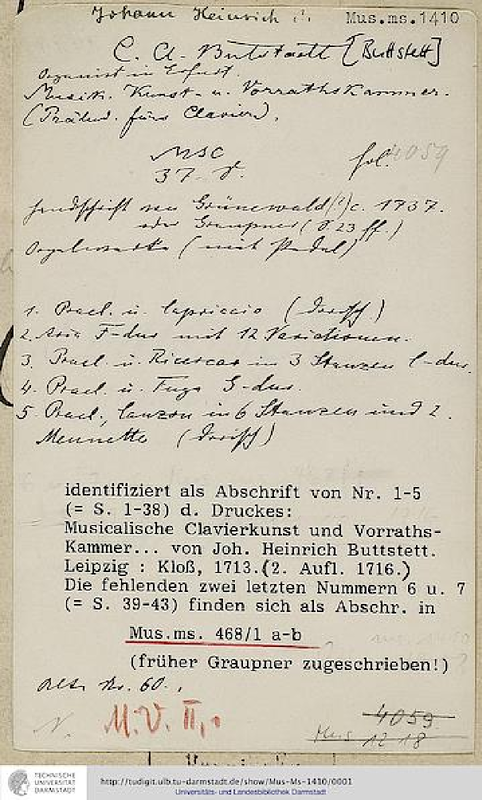 Johann Heinrich
Mus.ms. 1410
C. A. Buttstaedt [Buttstett]
Organist in Erfurt.
Musik. Kunst- u. Vorrathskammer.
(Prälud. fürs Clavier).
MSC
37. fol. 4059
Handschrift von Grünewald (?) c. 1737.
oder Graupner (S 23 ff.)
Orgelwerke (mit Pedal)
1. Prael. u. Capriccio (dorisch)
2. Aria F-dur mit 12 Variationen.
3. Prael. u. Ricercar in 3 Stanzen C-dur.
4. Prael. u. Fuga G-dur.
5 Prael., Canzon in 6 Stanzen und 2.
Menuette (dorisch)
identifiziert als Abschrift von Nr. 1-5
(= S. 1-38) d. Druckes:
Musicalische Clavierkunst und Vorraths-
Kammer... von Joh. Heinrich Buttstett.
Leipzig : Kloß, 1713.(2. Aufl. 1716.)
Die fehlenden zwei letzten Nummern 6 u. 7
(= S. 39-43) finden sich als Abschr. in
Mus.ms. 468/1 a-b
(früher Graupner zugeschrieben!)
alte Nr. 60.
N. M.V. II,
4059
Mus 1218
TECHNISCHE
UNIVERSITÄT
DARMSTADT
http://tudigit.ulb.tu-darmstadt.de/show/Mus-Ms-1410/0001
Universitäts- und Landesbibliothek Darmstadt